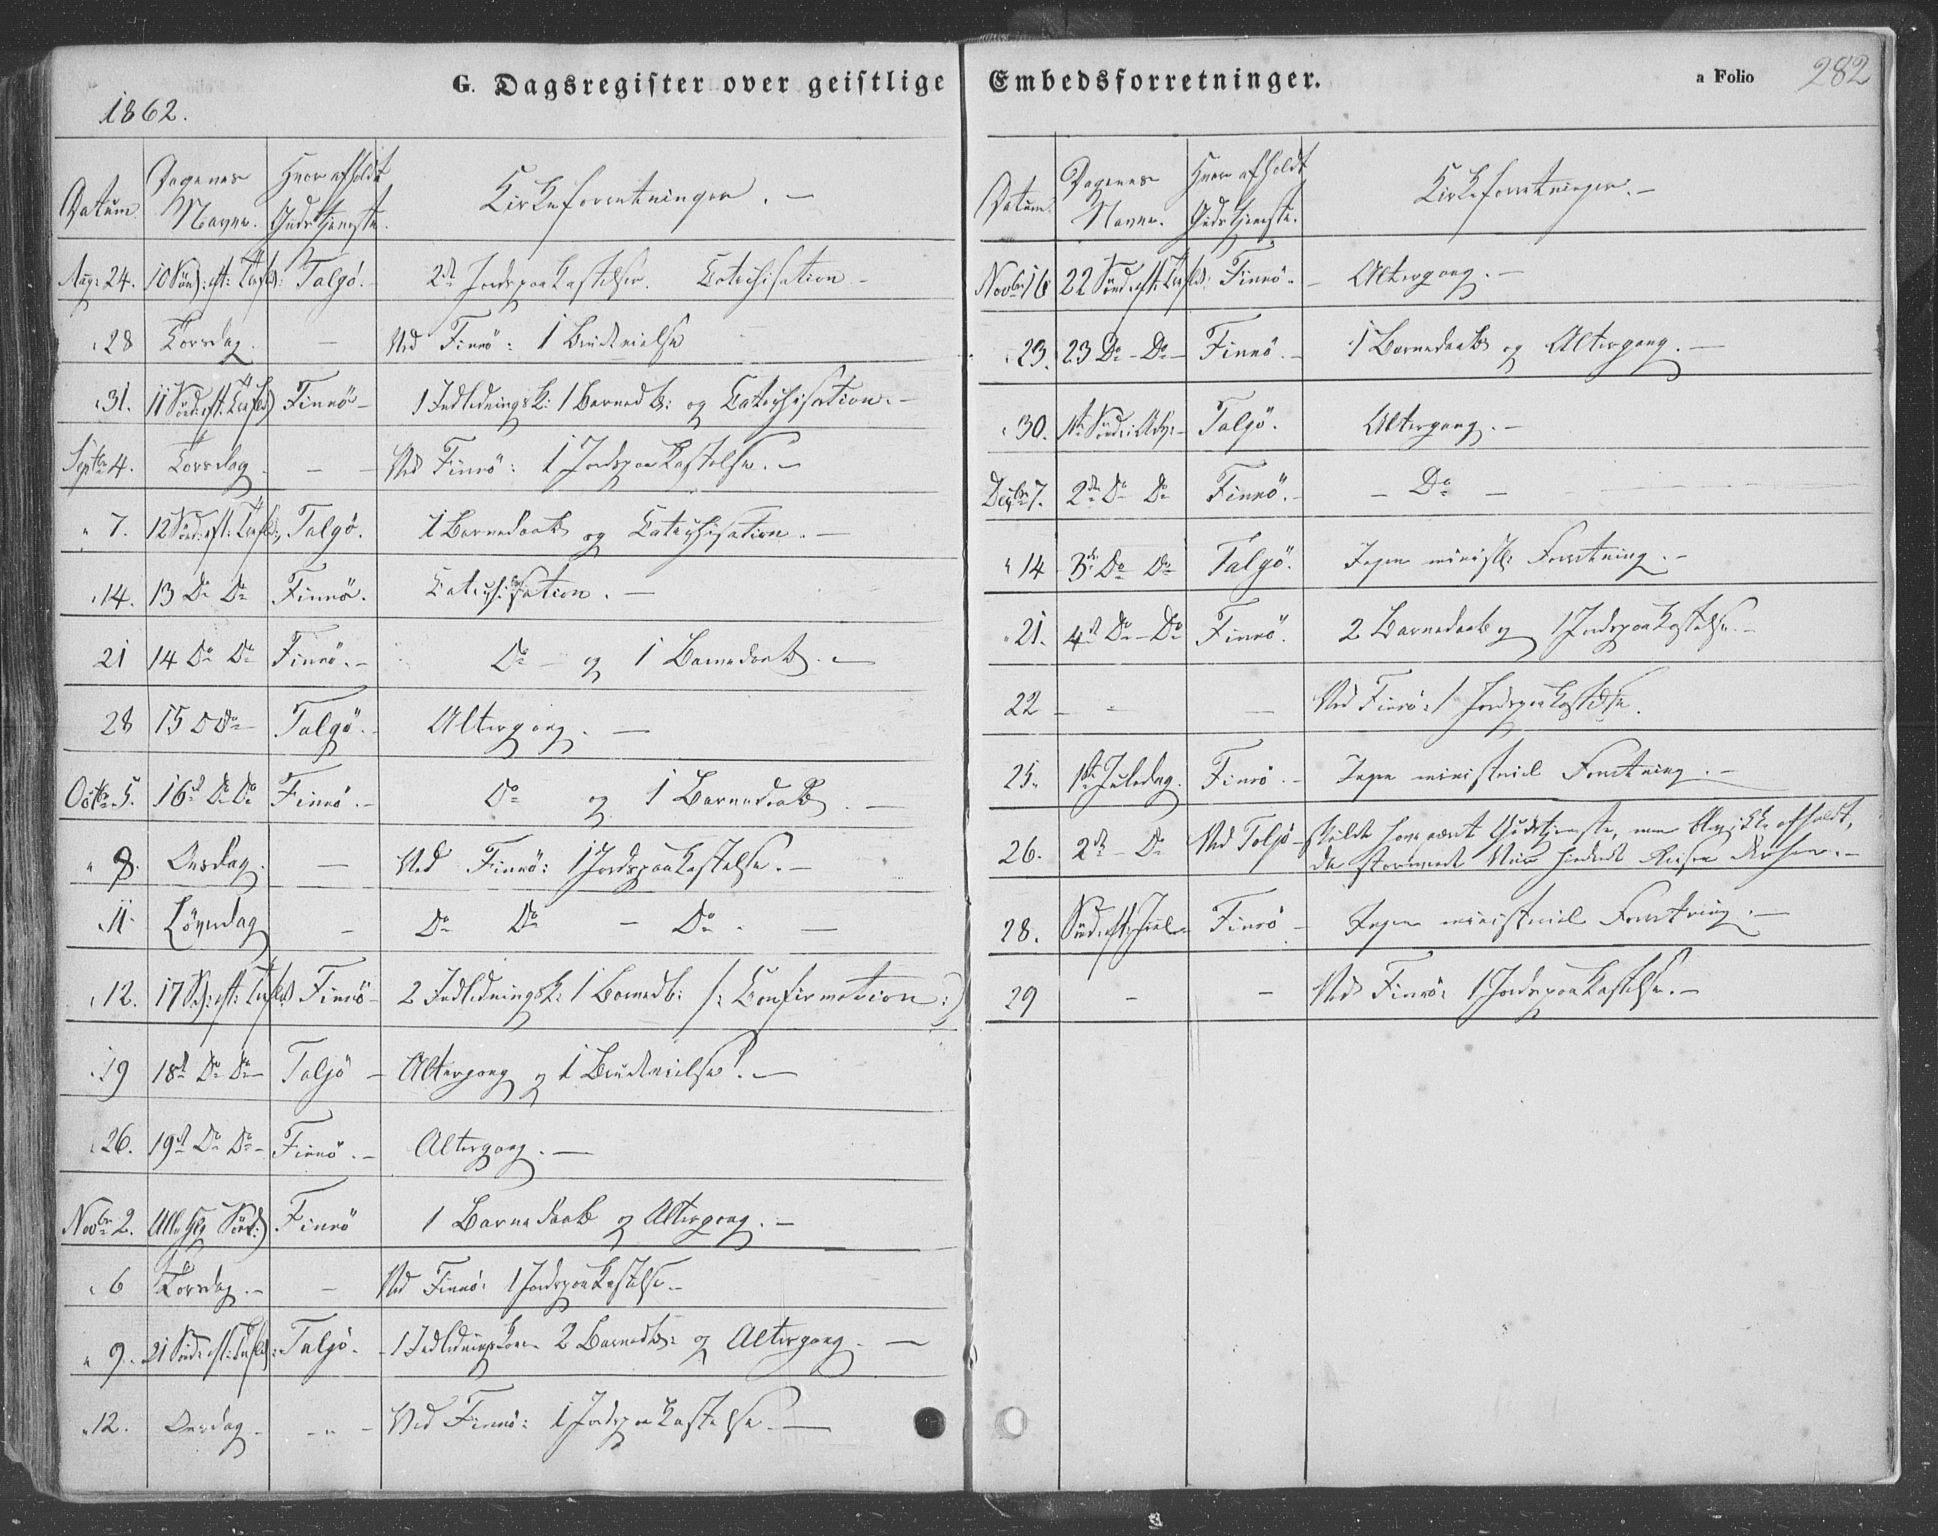 G. Dagsregister over geistlige Embedsforretninger.
a Folio 282
1862.
Datum. Dagenes Navne. Hvor afholdt Gudstjeneste. Kirkeforretninger. –
Aug: 24. 10 Sönd: eft: Trefld: Talgö. 2de Jordspaakastelser. Catechisation –
" 28 Torsdag. – Ved Finnö: 1 Brudevielse
" 31. 11 Sönd: eft: Trefld: Finnö – 1 Indledningsk: 1 Barnedb: og Catechisation. –
Septbr 4. Torsdag – – Ved Finnö: 1 Jordspaakastelse. –
" 7. 12 Sönd: eft: Trefld: Talgö. 1 Barnedaab og Catechisation. –
" 14. 13 Do Do Finnö. Catechisation. –
21 14 Do Do Finnö. – Do – og 1 Barnedaab. –
28 15 Do Do – Talgö. Altergang. –
Octbr 5. 16de Do Do Finnö. – Do og 1 Barnedaab. –
" 8. Onsdag. – Ved Finnö: 1 Jordspaakastelse. –
" 11. Löverdag – Do Do – Do. –
" 12. 17 Sönd: eft: Trefld: Finnö – 2 Indledningsk: 1 Barnedb: /: Confirmation :/
" 19 18de Do Do – Talgö – Altergang og 1 Brudevielse. –
" 26. 19de Do Do – Finnö. – Altergang. –
Novbr 2. Alle Helg Sönd: Finnö 1 Barnedaab og Altergang. –
" 6 Torsdag. – – Ved Finnö: 1 Jordspaakastelse. –
" 9. 21 Sönd: eft: Trefld: Talgö. – 1 Indledningskone 2 Barnedb: og Altergang. –
" 12. Onsdag – – " – Ved Finnö: 1 Jordspaakastelse. –
Datum. Dagenes Navne. Hvor afholdt Gudstjeneste. Kirkeforretninger. –
Novbr 16 22 Sönd: eft: Trefld: Finnö – Altergang. –
" 23. 23 Do – Do – Finnö. – 1 Barnedaab og Altergang. –
" 30. 1ste Sönd: i Adv: – Talgö. Altergang. –
Decbr 7. 2den Do Do Finnö. – – Do –
" 14 3die Do Do Talgö. Ingen minist: Forretning. –
" 21. 4de Do – Do Finnö. 2 Barnedaab og 1 Jordspaakastelse. –
22 – – – Ved Finnö: 1 Jordspaakastelse.
25. 1ste Juledag. Finnö. – Ingen ministeriel Forretning. –
26. 2den – Do Ved Talgö skulde have været Gudstjeneste, men blev ikke afholdt,
da stormende Veir hindrede Reisen derhen. –
28. Sönd: eft: Juul – Finnö – Ingen ministeriel Forretning. –
29 – – Ved Finnö: 1 Jordspaakastelse. –